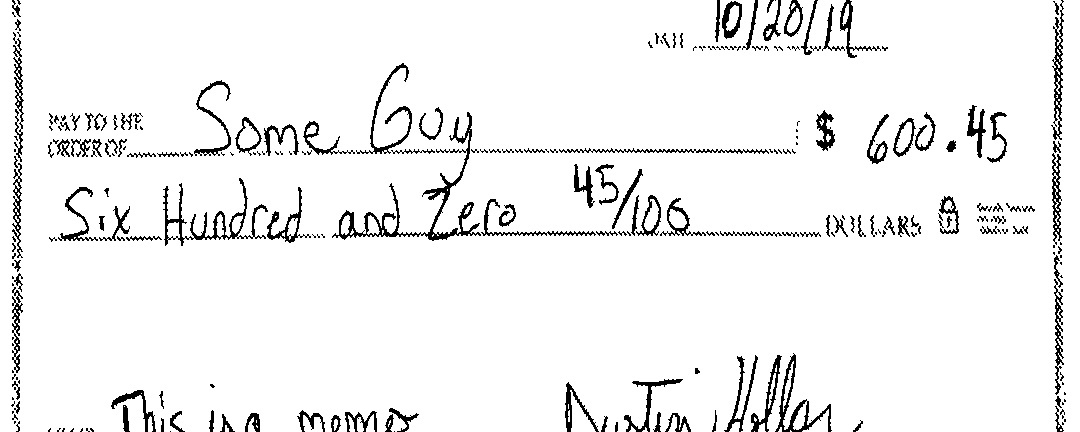 DATE 10/20/19
PAY TO THE
ORDER OF Some Guy $ 600.45
Six Hundred and Zero 45/100 DOLLARS
This is a memo